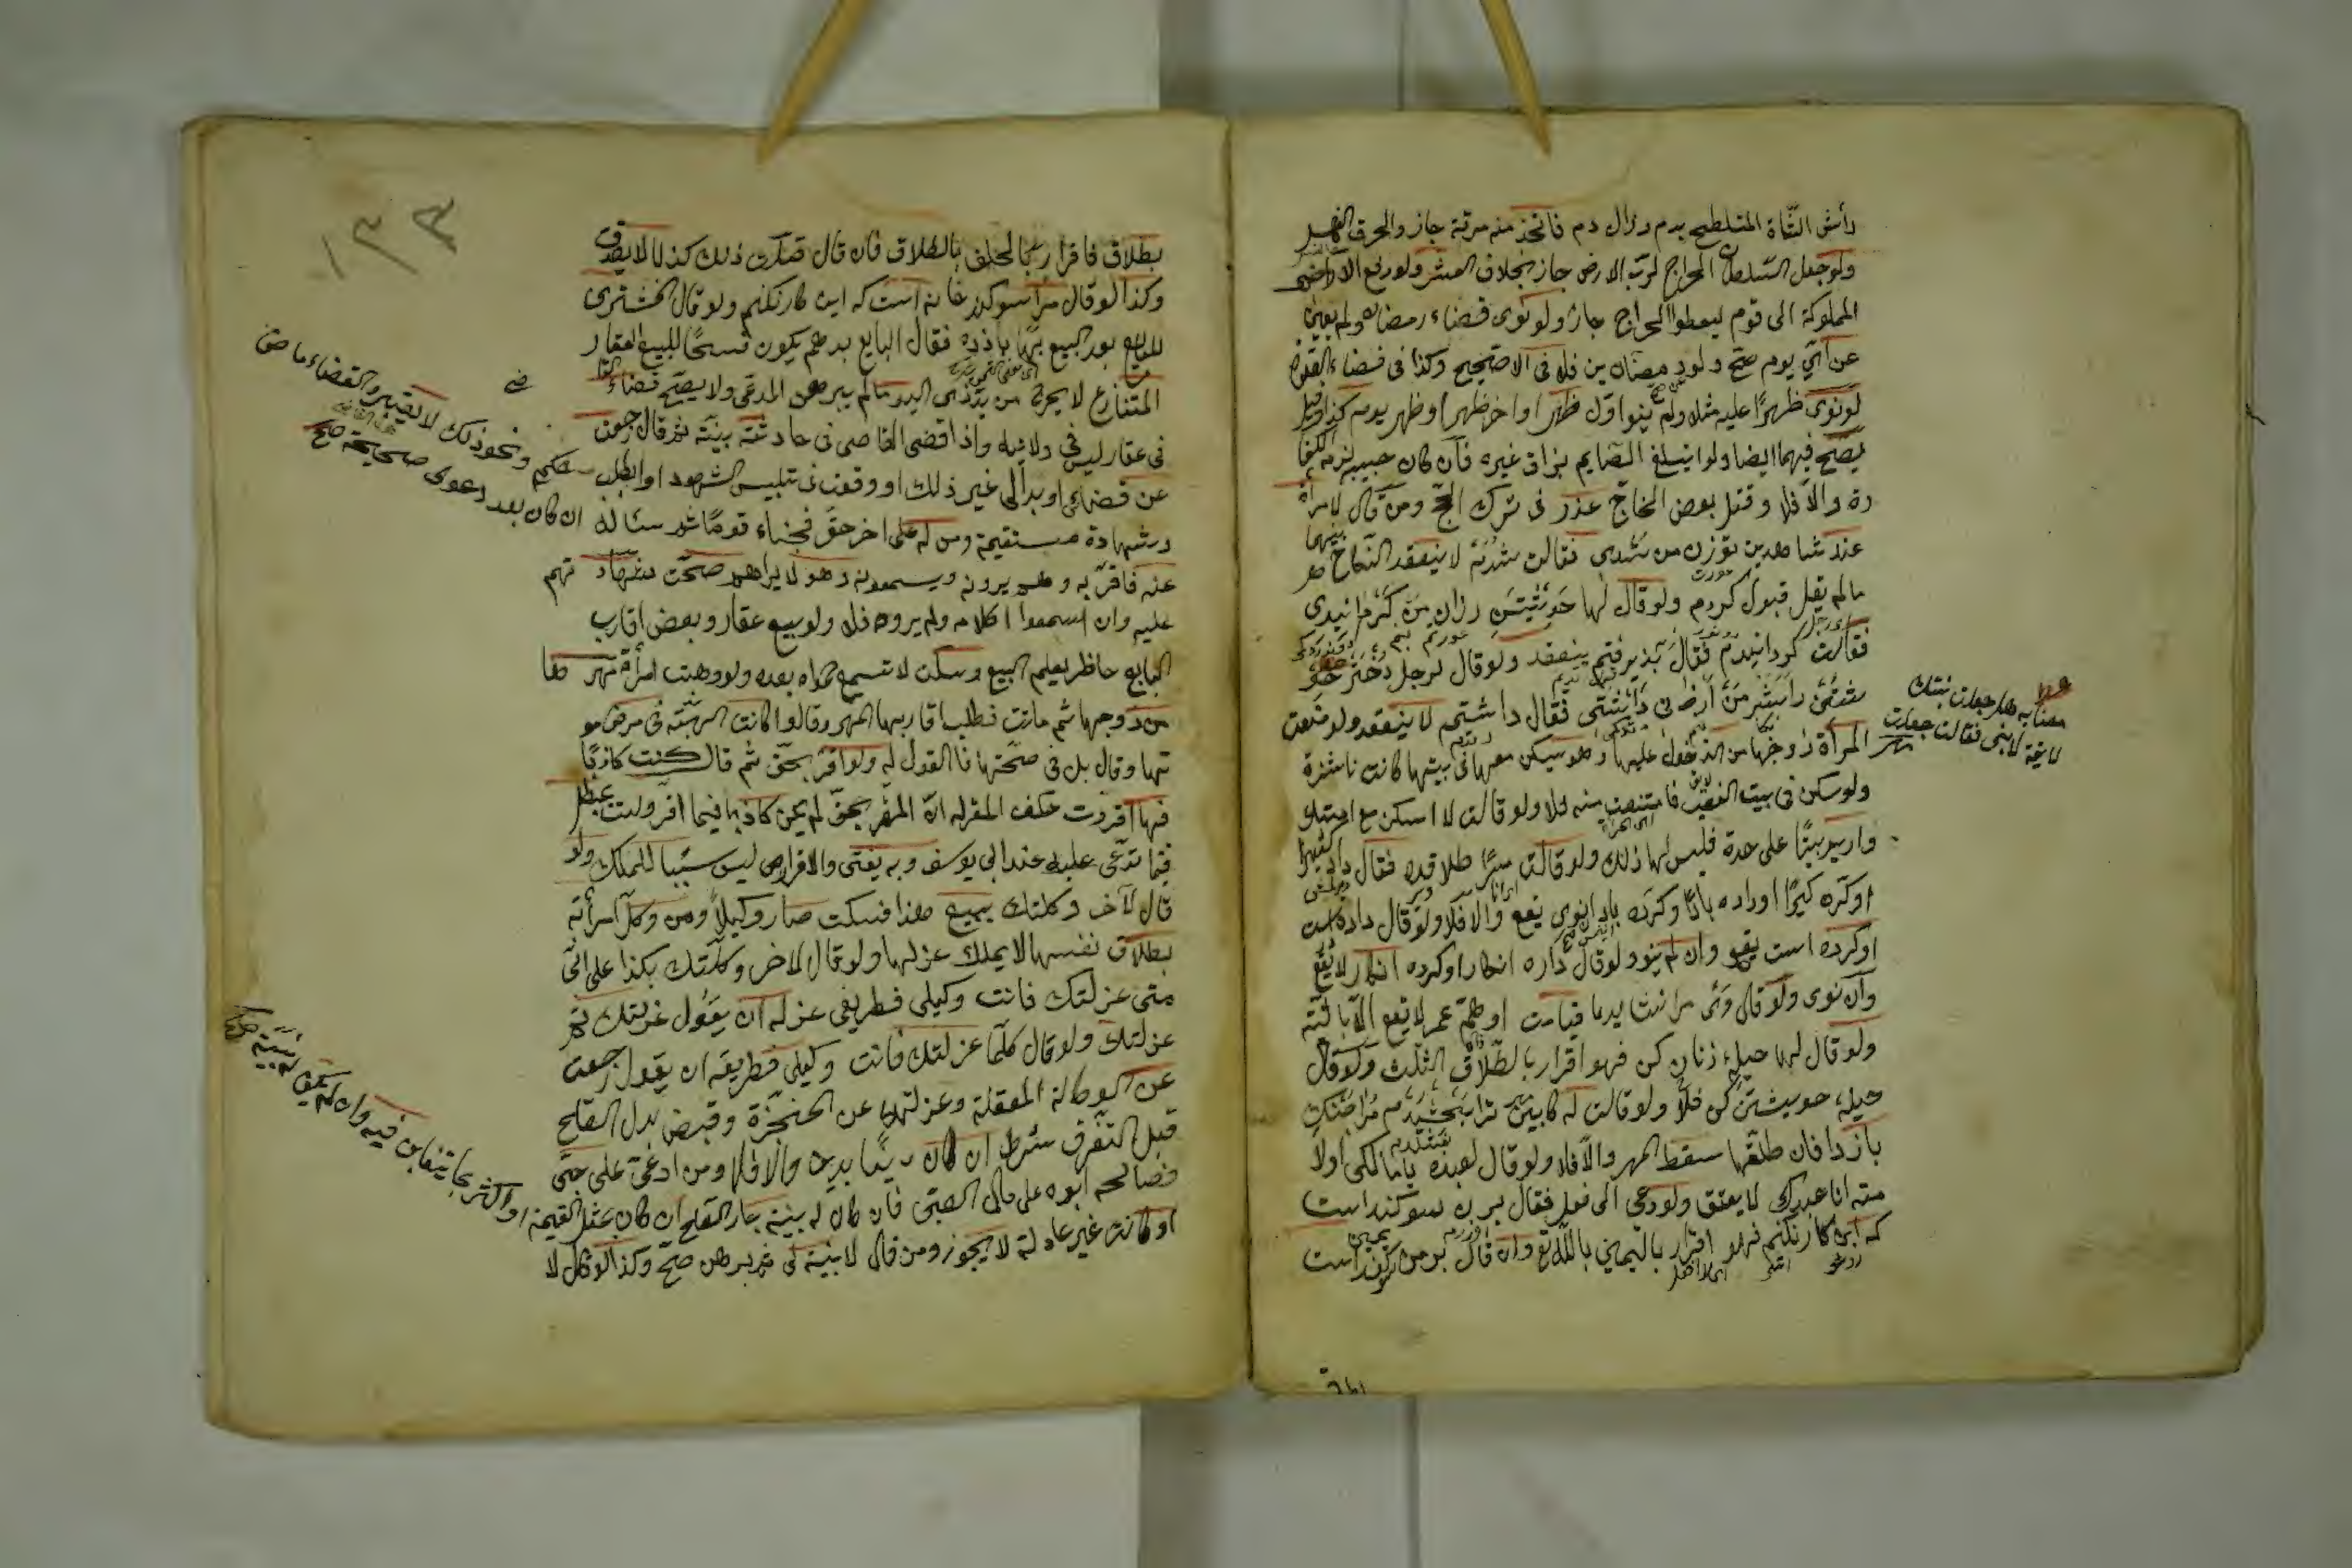 رأس الشاة المتلطخ بدم وزال دم فاتخذ منه مرقة جاز والحرق كالغسل
ولو جعل السلطان الخراج لرب الارض جاز بخلاف العشر ولو دفع الاراضي
المملوكة الى قوم ليعطوا الخراج جاز ولو نوى قضاء رمضان ولم يعين
عن اي يوم صح ولو رمضانين فلا في الاصح وكذا في قضاء الصلوة
لو نوى ظهرا عليه مثلا ولم ينو اول ظهر او اخر ظهر او ظهر يوم كذا وقيل
يصح فيهما ايضا ولو ابتلع الصايم بزاق غيره فان كان حبيبه لزمه الكفا
رة والا فلا وقتل بعض الحاج عذر في ترك الحج ومن قال لامرأة
عند شاهدين توزن من شدي فقالت شدم لا ينعقد النكاح بينهما
مالم يقل قبول كردم ولو قال لها خويشتن رازن من كردانيدي
فقالت كردانيدم فقال بذيرفتم ينعقد ولو قال لرجل دختر خويش
بسر من ارزاني داشتي فقال داشتم لا ينعقد ولو منعت
المرأة زوجها من الدخول عليها وهو يسكن معها في بيتها كانت ناشزة
ولو سكن في بيت الغصب فامتنعت منه فلا ولو قالت لا اسكن مع امتك
واريد بيتا على حدة فليس لها ذلك ولو قالت مرا طلاق ده فقال داده كير
او كرده كير او داده باد او كرده باد ان نوى يقع والا فلا ولو قال داده است
او كرده است يقع وان لم ينو ولو قال داده انكار او كرده انكار لا يقع
وان نوى ولو قال وي مرا نشايد تا قيامت او همه عمر لا يقع الا بالنية
ولو قال لها حيلهء زنان كن فهو اقرار بالطلاق الثلث ولو قال
حيلهء خويشتن كن فلا ولو قالت له كابين ترا بخشيدم مرا جنك
باز دار فان طلقها سقط المهر والا فلا ولو قال لعبده يا مالكي او لا
مته انا عبدك لا يعتق ولو دعي الى فعل فقال بر من سوكند است
كه اين كار نكنم فهو اقرار باليمين بالله تع وان قال بر من سوكند است
بطلاق فاقرار بالحلف بالطلاق فان قال قصدت ذلك كذبا لا يصدق
وكذا لو قال مرا سوكند خانه است كه اين كار نكنم ولو قال المشتري
للبايع بعد البيع بها باز ده فقال البايع بدهم يكون فسخا للبيع العقار
المتنازع لا يخرج من يد ذى اليد مالم يبرهن المدعي ولا يصح قضاء القا
في عقار ليس في ولايته واذا قضى القاضي في حادثة ببينة ثم قال رجعت
عن قضائي او بدا لي غير ذلك او وقعت في تلبيس الشهود او ابطلت حكمي ونحو ذلك لا يعتبر والقضاء ماض
ان كان بعد دعوى صحيحة صح
وشهادة مستقيمة ومن له على اخر حق فخباء قوما ثم سئاله
عنه فاقر به وهم يرونه ويسمعونه وهو لا يراهم صحت شهاد تهم
عليه وان سمعوا كلامه ولم يروه فلا ولو بيع عقار وبعض اقارب
البايع حاضر يعلم البيع وسكت لا تسمع دعواه بعده ولو وهبت امرأة مهر ها
من زوجها ثم ماتت فطلب اقاربها المهر وقالوا كانت الهبة في مرض مو
تها وقال بل في صحتها فالقول له ولو اقر بحق ثم قال كنت كاذبا
فيما اقررت حلف المقر له ان المقر بحق لم يكن كاذبا فيما اقر ولست بمبطل
فيما تدعي عليه عند ابي يوسف وبه يفتى والاقرار ليس سببا للملك ولو
قال لآخر وكلتك ببيع هذا فسكت صار وكيلا ومن وكل امرأته
بطلاق نفسها لا يملك عزلها ولو قال لاخر وكلتك بكذا على اني
متى عزلتك فانت وكيلي فطريق عزله ان يقول عزلتك ثم
عزلتك ولو قال كلما عزلتك فانت وكيلي فطريقه ان يقول رجعت
عن الوكالة المعلقة وعزلتك عن المنجزة وقبض بدل الصلح
قبل التفرق شرط ان كان دينا بدين والا فلا ومن ادعى على صبي
فصالحه ابوه على مال الصبي فان كان له بينة جاز الصلح ان كان بمثل القيمة او اكثر بما يتغابن فيه وان لم يكن له بينة
او كانت غير عادلة لا يجوز ومن قال لا بينة لي ثم برهن صح وكذا لو قال لا
١٣٣